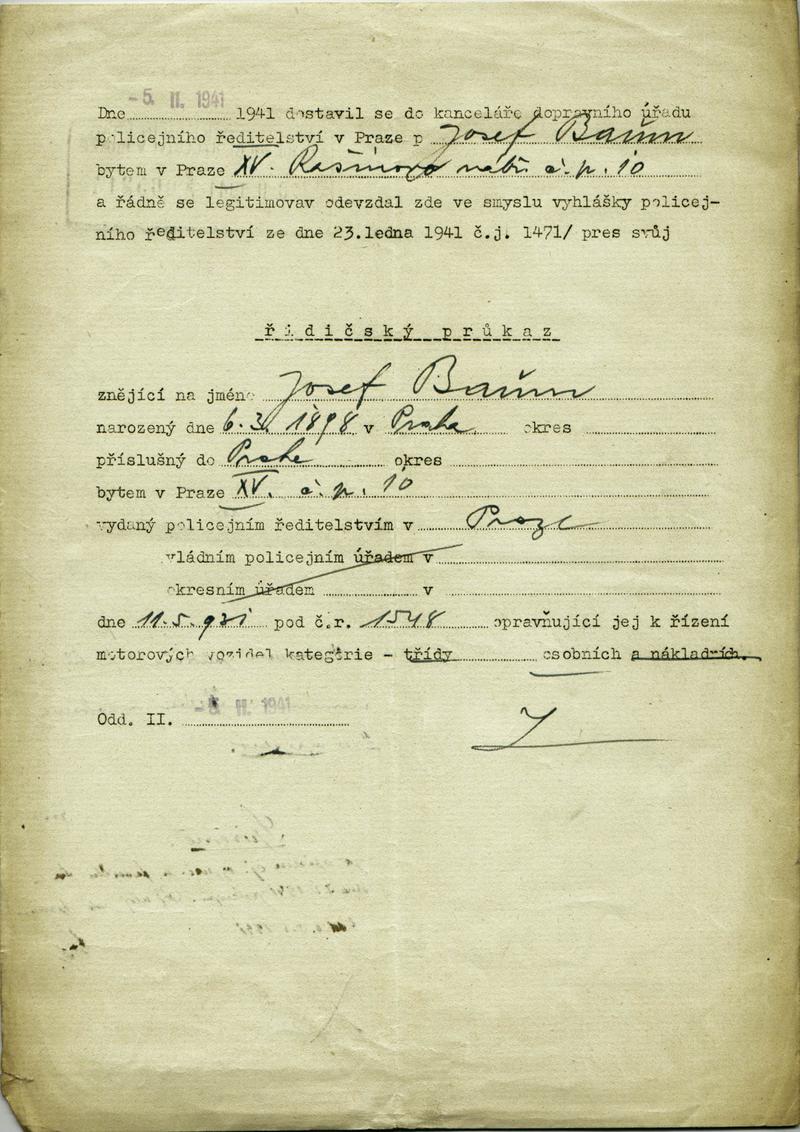 - 5. II. 1941
Dne 1941 dostavil se do kanceláře dopravního úřadu
policejního ředitelství v Praze p Josef Baum
bytem v Praze XV. Rašínovo nábř. č. p. 10
a řádně se legitimovav odevzdal zde ve smyslu vyhlášky policej-
ního ředitelství ze dne 23.ledna 1941 č.j. 1471/ pres svůj
řidičský průkaz
znějící na jméno Josef Baum
narozený dne 6. 3. 1898 v Praha okres
příslušný do Praha okres
bytem v Praze XV. č. p. 10
vydaný policejním ředitelstvím v Praze
vládním policejním úřadem v
okresním úřadem v
dne 11. 5. 931 pod č.r. 1548 opravňující jej k řízení
motorových vozidel kategórie - třídy osobních a nákladních.
- 5. II. 1941
Odd. II.